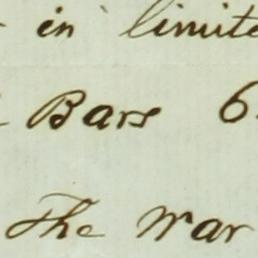 in limite
Bars 6
The War